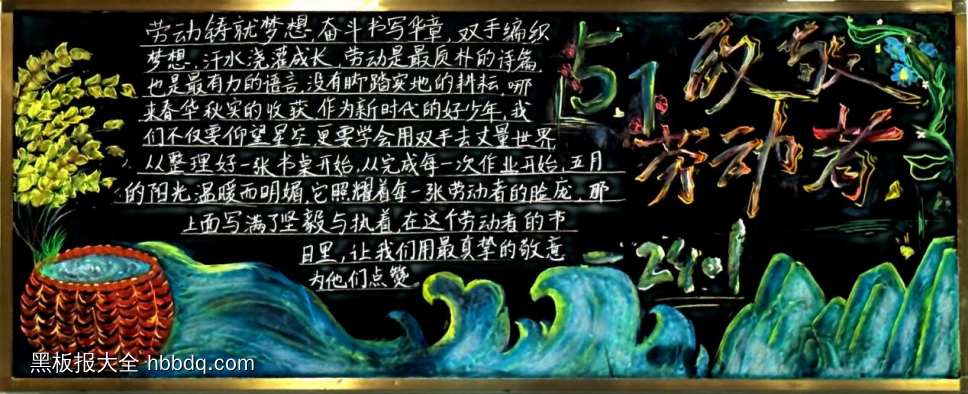 劳动铸就梦想,奋斗书写华章,双手编织
梦想,汗水浇灌成长,劳动是最质朴的诗篇,
也是最有力的语言,没有脚踏实地的耕耘,哪
来春华秋实的收获,作为新时代的好少年,我
们不仅要仰望星空,更要学会用双手去丈量世界,
从整理好一张书桌开始,从完成每一次作业开始,五月
的阳光,温暖而明媚,它照耀着每一张劳动者的脸庞,那
上面写满了坚毅与执着,在这个劳动者的节
日里,让我们用最真挚的敬意
为他们点赞。
5.1
致敬
劳动者
-24.1
黑板报大全 hbbdq.com